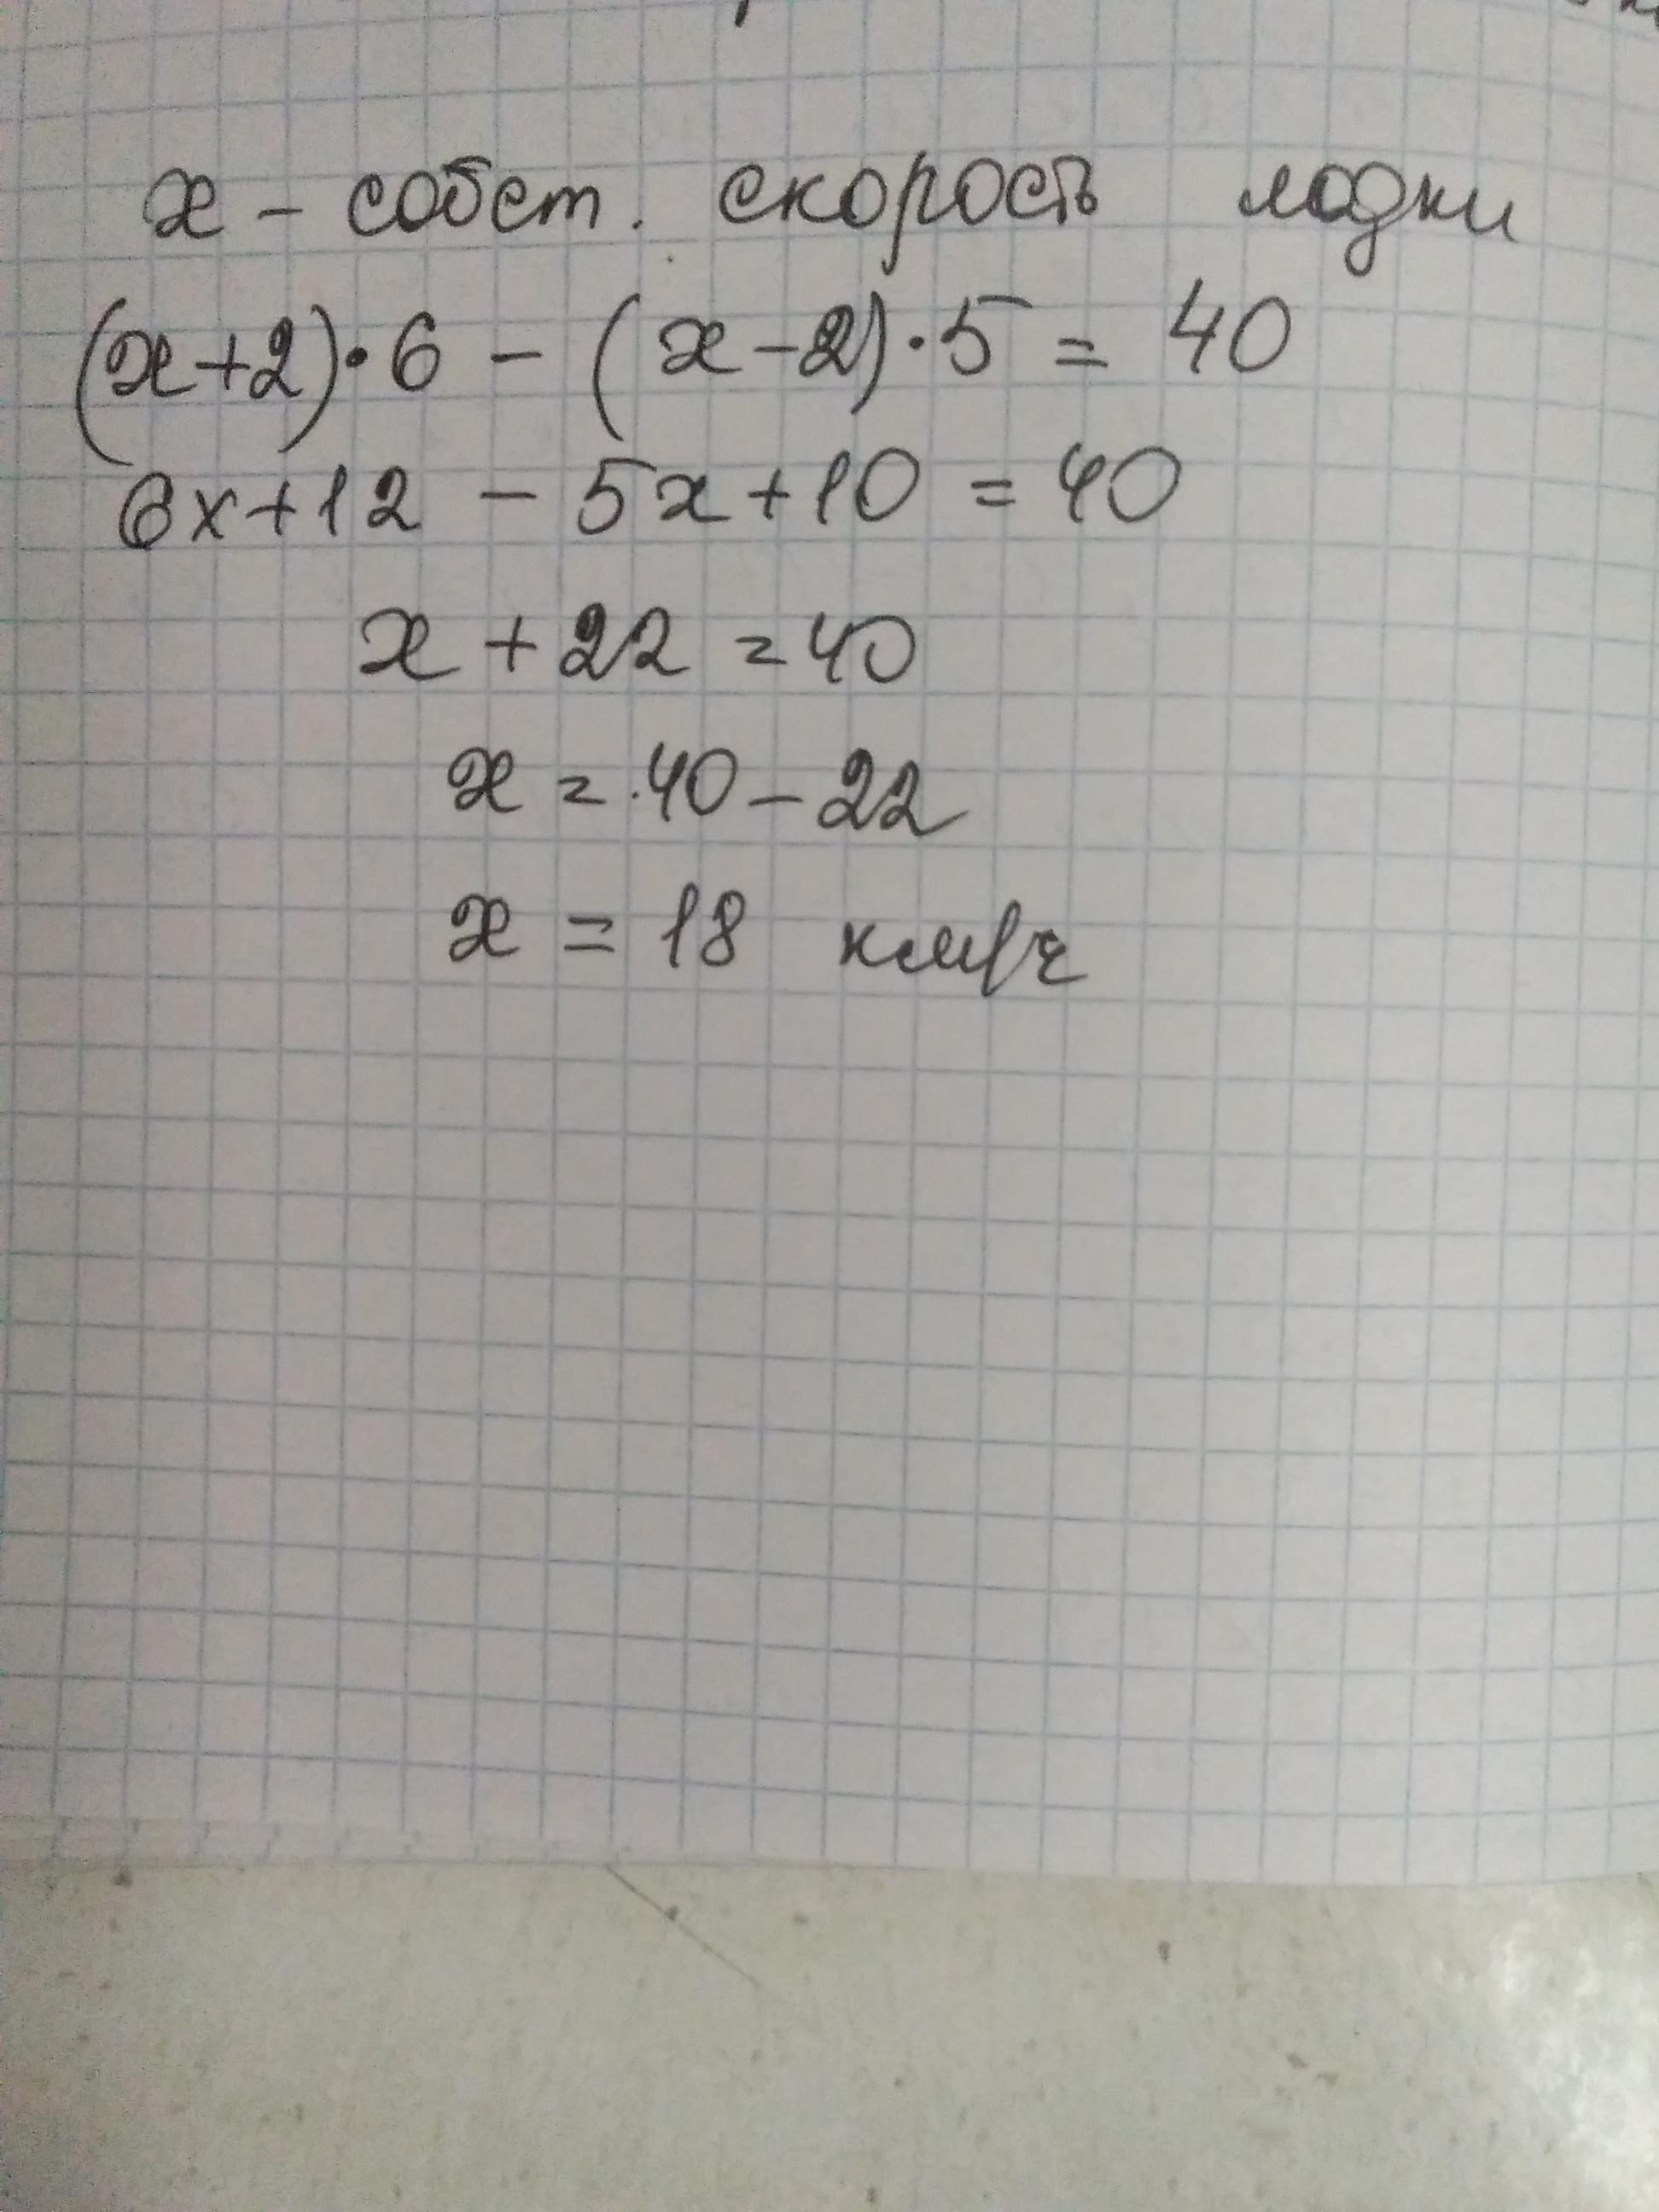 x - собст. скорость лодки
(x+2)·6 - (x-2)·5 = 40
6x+12 - 5x+10 = 40
x + 22 = 40
x = 40 - 22
x = 18 км/ч